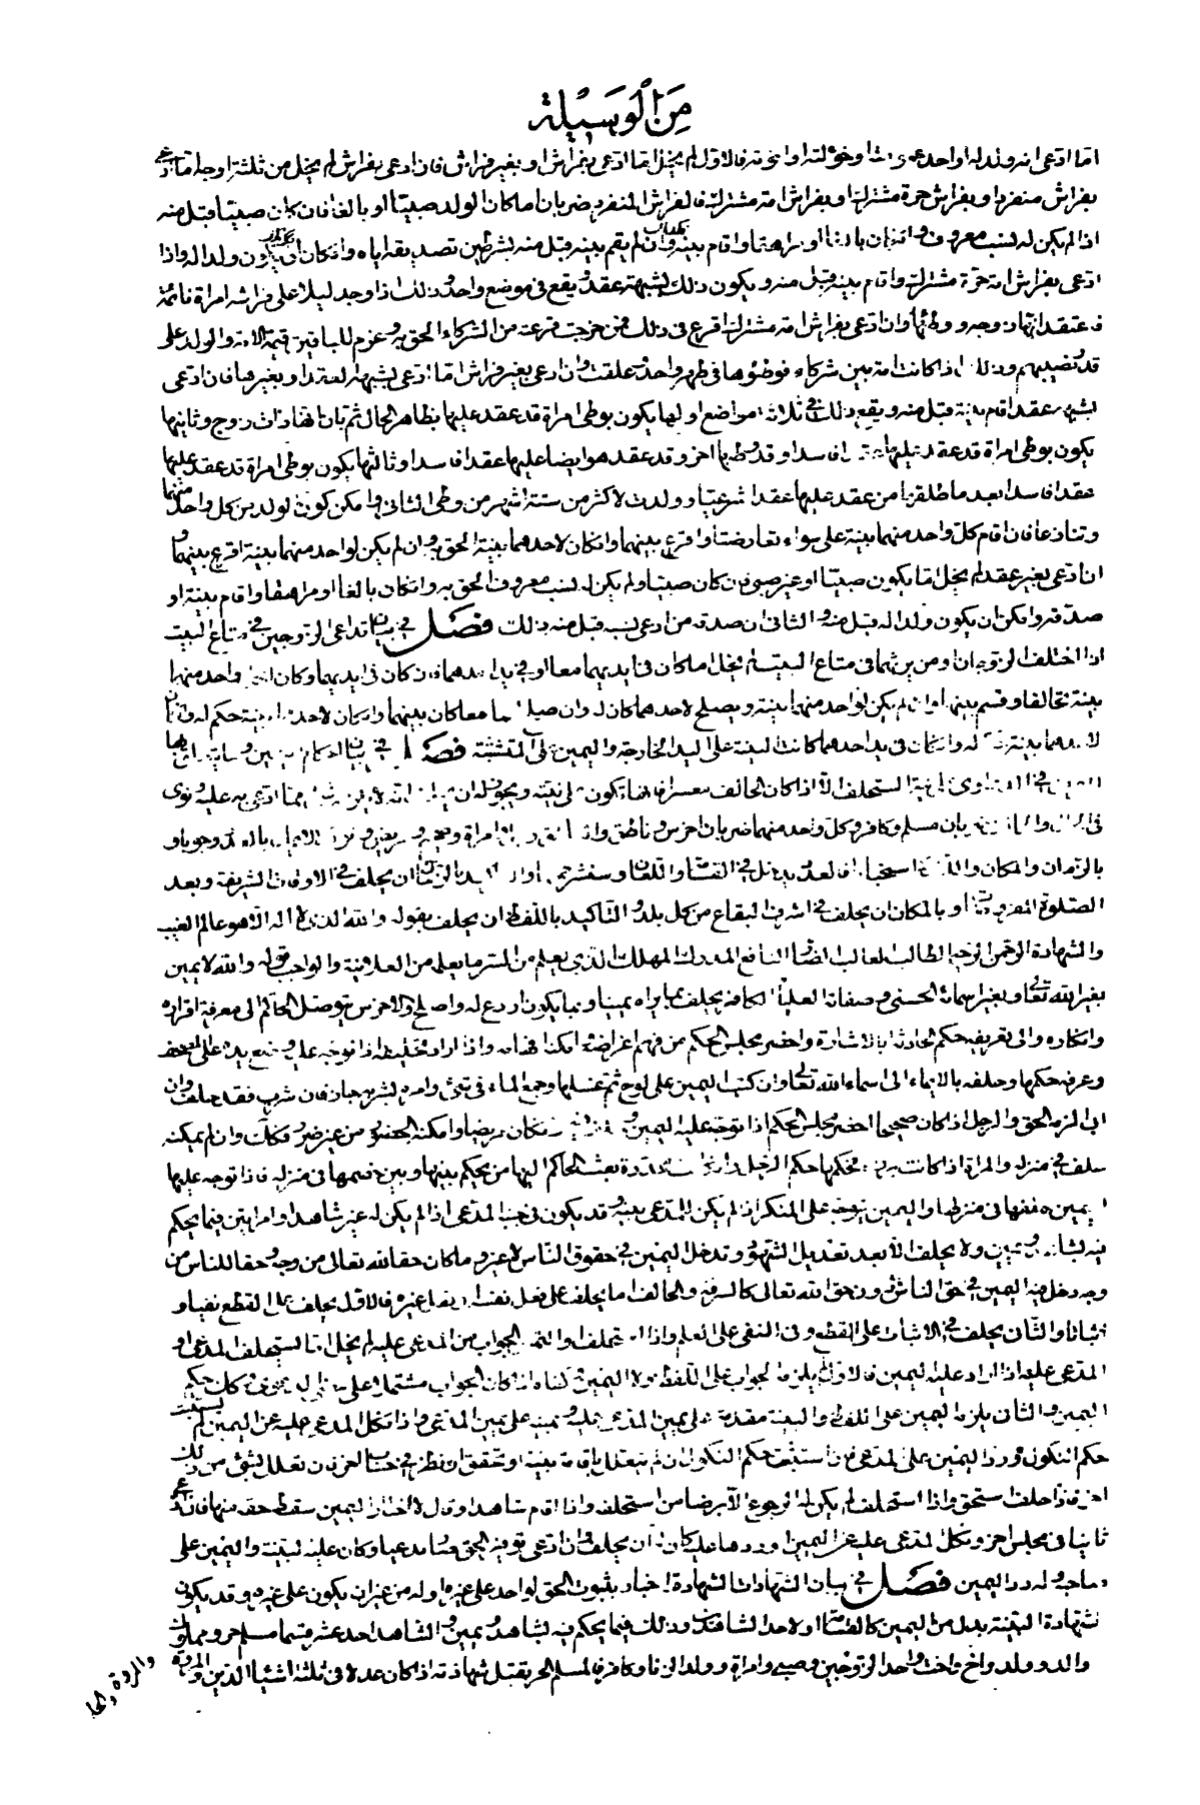 مِنَ الوَسيلة
اما ادعى انه ولد له او احد او خولته او اخوته فالاول لم يخل اما ادعى بفراش او بغير فراش فان ادعى بفراش لم يخل من ثلثة اوجه اما ادعى
بفراش منفرد او بفراش حرة مشتركة او بفراش امة مشتركة فالفراش المنفرد ضربان اما كان الولد صبيا او بالغا فان كان صبيا قبل منه
اذا لم يكن له نسب معروف وان كان بالغا او مراهقا واقام بينة وان لم يقم بينة قبل منه بشرطين تصديقه اياه وامكان ان يكون ولدا له واذا
ادعى بفراش امة حرة مشتركة واقام بينة قبل منه ويكون ذلك لشبهة عقد ويقع في موضع واحد وذلك اذا وجد ليلا على فراشه امراة نائمة
فاعتقد انها زوجه ووطئها وان ادعى بفراش امة مشتركة اقرع في ذلك فمن خرجت قرعته من الشركاء الحق به وغرم للباقين قيمة الامة والولد على
قدر نصيبهم وذلك اذا كانت امة بين شركاء فوطؤوها في طهر واحد وعلقت وان ادعى بغير فراش اما ادعى لشبهة العقد او بغيرها فان ادعى
بشبهة عقد اقام بينة قبل منه ويقع ذلك في ثلاثة مواضع اولها يكون بوطى امراة قد عقد عليها بظاهر الحال ثم بان انها ذات زوج وثانيها
يكون بوطى امراة قد عقد عليها فاسدا وقد وطيها اخر وقد عقد هو ايضا عليها عقدا فاسدا وثالثها يكون بوطى امراة قد عقد عليها
عقدا فاسدا بعد ما طلقها من عقد عليها عقدا شرعيا وولدت لاكثر من ستة اشهر من وطى الثاني وامكن كون الولد من كل واحد منهما
وتنازعا فان اقام كل واحد منهما بينة على سواء تعارضتا واقرع بينهما وان كان لاحدهما بينة الحق به وان لم يكن لواحد منهما بينة اقرع بينهما و
ان ادعى بغير عقد لم يخل اما يكون صبيا او غير صبي فان كان صبيا ولم يكن له نسب معروف الحق به وان كان بالغا او مراهقا واقام بينة او
صدقه وامكن ان يكون ولدا له قبل منه والثاني ان صدقه من ادعى نسبه قبل منه ذلك فصل في بيان تداعى الزوجين في متاع البيت
اذا اختلف الزوجان او من يرثهما في متاع البيت لم يخل اما كان في ايديهما معا او في يد احدهما فان كان في ايديهما وكان لكل واحد منهما
بينة تحالفا وقسم بينهما وان لم يكن لواحد منهما بينة ويصلح لاحدهما كان له وان صلح لهما معا كان بينهما وان كان لاحدهما بينة حكم له وان
لاحدهما بينة له وان كان في يد احدهما كانت البينة على اليد الخارجة واليمين على المتشبثة فصل في بيان احكام اليمين وما يتعلق بها
اليمين في الدعاوى على نية المستحلف الا اذا كان الحالف معسرا فانها تكون على نيته ويجوز له ان مما ادعى به عليه ونوى
ضربان مسلم وكافر وكل واحد منهما ضربان اخرس وناطق بالعدد وجوبا و
بالزمان والمكان واللفظ استحبابا فالعدد يدخل في القسامة واللعان وسنشرحه ان يحلف في الاوقات الشريفة وبعد
الصلوة المفروضة او بالمكان ان يحلف في اشرف البقاع من كل بلد والتاكيد باللفظ ان يحلف بقوله والله الذي لا اله الا هو عالم الغيب
والشهادة الرحمن الرحيم الطالب الغالب الضار النافع المدرك المهلك الذي يعلم من السر ما يعلم من العلانية والواجب قوله والله لا يمين
بغير الله تعالى او بغير اسمائه الحسنى وصفاته العليا الكافر يحلف بما يراه يمينا وبما يكون اردع له واصلح والاخرس يتوصل الحاكم الى معرفة اقراره
وانكاره والى تعريفه حكم الحادثة بالاشارة واحضر مجلس الحكم من فهم اغراضه امكنه افهامه واذا اراد تحليفه اذا توجه عليه وضع يده على المصحف
وعرفه حكمها وحلفه بالايماء الى اسماء الله تعالى وان كتب اليمين على لوح ثم غسلها وجمع الماء في شئ وامره بشربه جاز فان شرب فقد حلف وان
ابى الزمه الحق والرجل اذا كان صحيحا احضر مجلس الحكم اذا توجه عليه اليمين وان كان مريضا وامكنه الحضور من غير ضرر فكذلك وان لم يمكنه
حلف في منزله والمراة اذا كانت برزة فحكمها حكم الرجل وان كانت مخدرة بعث الحاكم اليها من يحكم بينها وبين خصمها في منزله فاذا توجه عليها
اليمين حلفها في منزلها واليمين يتوجه على المنكر اذا لم يكن للمدعى بينة وقد يكون في جنبة المدعى اذا لم يكن له غير شاهد او امراتين فيما يحكم
فيه بشاهد ويمين ولا يحلف الا بعد تعديل الشهود وتدخل اليمين في حقوق الناس لا غير وما كان حقا لله تعالى من وجه وحقا للناس من
وجه دخل فيه اليمين في حق الناس دون حق الله تعالى كالسرقة والحالف اما يحلف على فعل نفسه او فعل غيره فالاول يحلف على القطع نفيا و
اثباتا والثاني يحلف في الاثبات على القطع وفي النفي على العلم واذا استحلف والتمس الجواب من المدعى عليه لم يخل اما استحلف المدعى او
المدعى عليه اذا اراد عليه اليمين فالاول يلزمه الجواب على اللفظ ولا اليمين كفاه اذا كان الجواب مشتملا على
اليمين والثاني يلزمه اليمين على اللفظ والبينة مقدمة على يمين المدعى عليه ويمينه على يمين المدعى واذا نكل المدعى عليه عن اليمين لم يستثبت
حكم النكول ورد اليمين على المدعى فان استثبت حكم النكول ان لم يتعلل باقامة بينة او تحقق او نظر في حساب اخر فان تعلل بشئ من ذلك
اخر فاذا حلف استحق واذا استحلف لم يكن له الرجوع الا برضا من استحلف واذا اقام شاهدا وقال لا اختار اليمين سقط حقه منها فان ادعى
ثانيا في مجلس اخر ونكل المدعى عليه عن اليمين وردها عليه كان له ان يحلف وان ادعى توفية الحق صار مدعيا وكان عليه البينة واليمين على
صاحبه وله رد اليمين فصل في بيان الشهادات الشهادة اخبار بثبوت الحق لواحد على غيره او له من غير ان يكون على غيره وقد يكون
شهادة البينة بدل من اليمين كالقسامة او لاحد الشاهدين وذلك فيما يحكم فيه بشاهد ويمين والشاهد احد عشر قسما مسلم حر ومملوك
والد وولد واخ واخت واحد الزوجين وصبي وامراة وولد الزنا وكافر فالمسلم الحر يقبل شهادته اذا كان عدلا في ثلثة اشياء الدين والمروة
والمروة والحكم